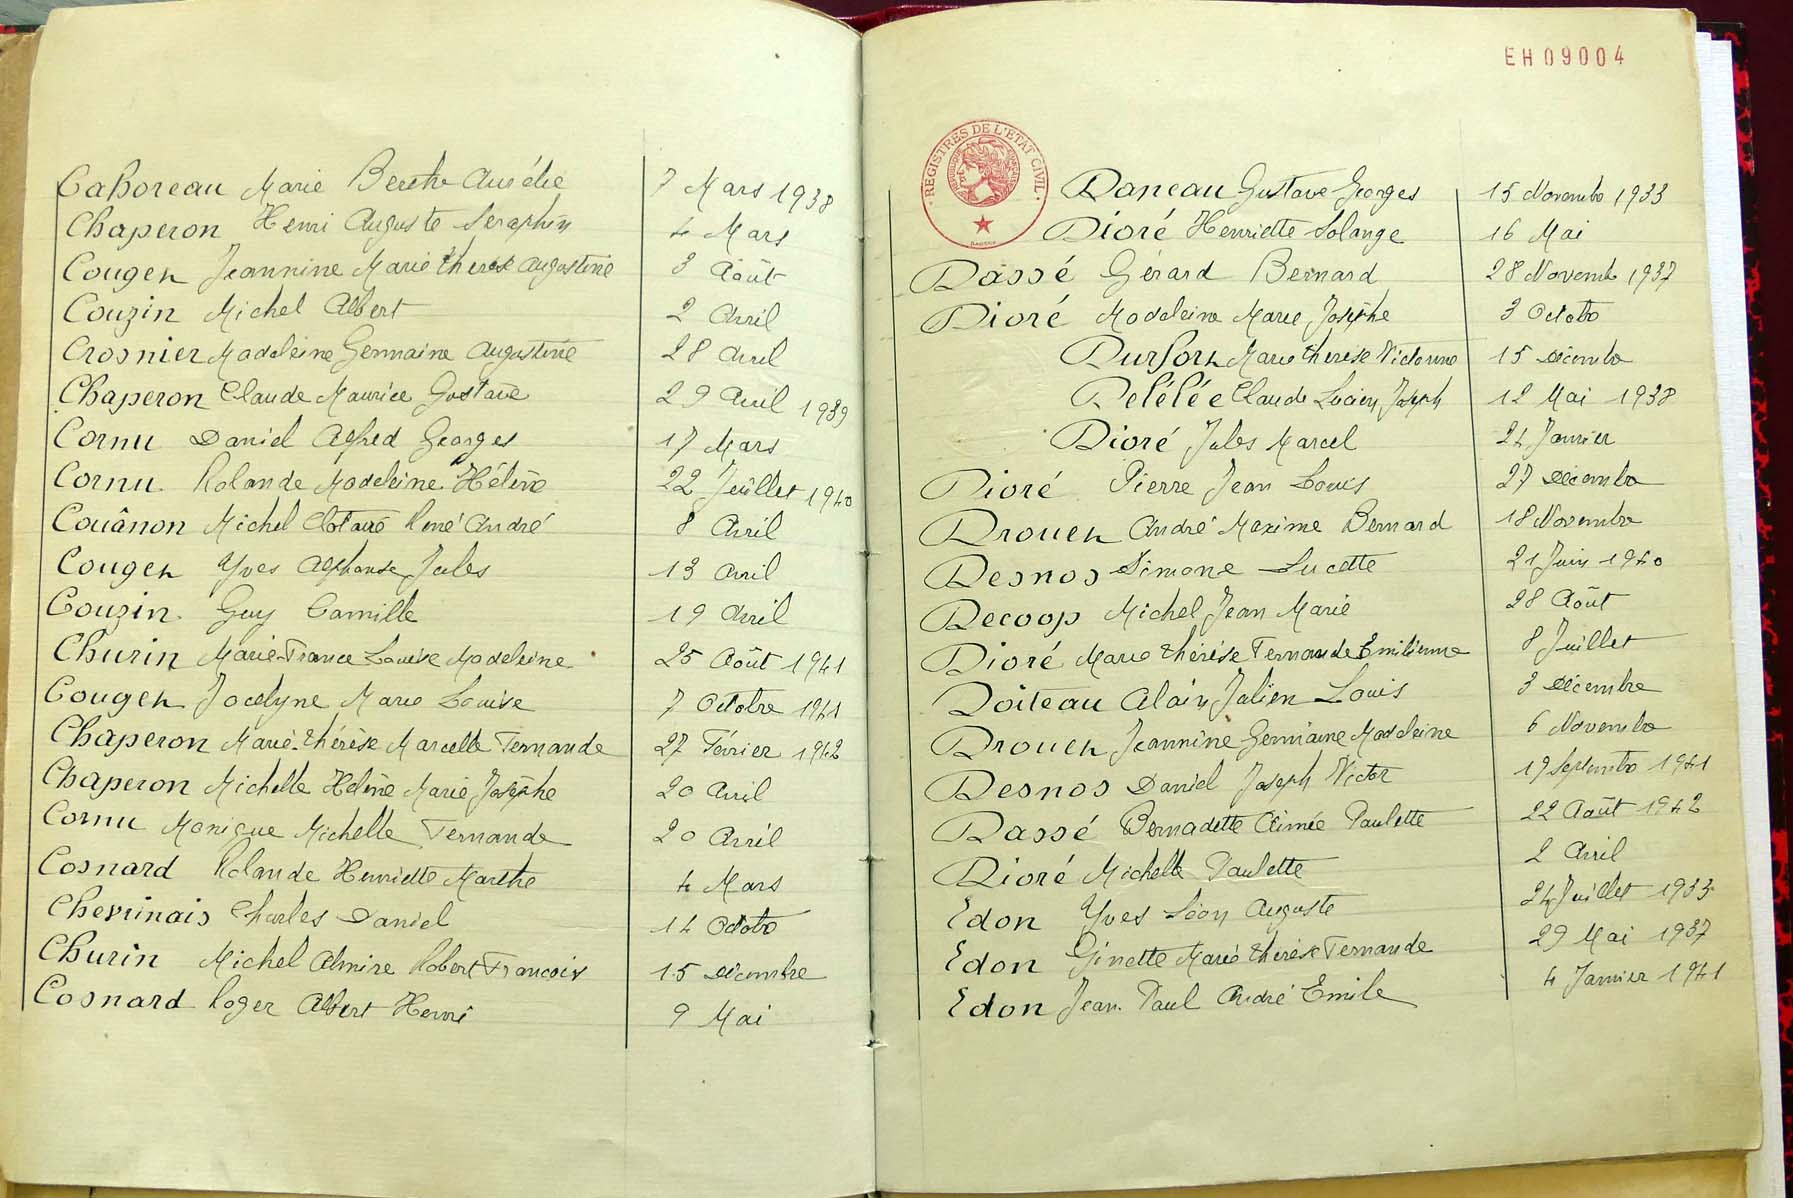 Cahoreau Marie Berthe Aurélie 7 Mars 1938
Chaperon Henri Auguste Seraphin 4 Mars
Cougen Jeannine Marie thérèse Augustine 3 Août
Couzin Michel Albert 2 Avril
Crosnier Madeleine Germaine Augustine 28 Avril
Chaperon Claude Maurice Gustave 29 Avril 1939
Cornu Daniel Alfred Georges 17 Mars
Cornu Rolande Madeleine Hélène 22 Juillet 1940
Couânon Michel Clotaire René André 8 Avril
Cougen Yves Alphonse Jules 13 Avril
Couzin Guy Camille 19 Avril
Churin Marie-France Louise Madeleine 25 Août 1941
Cougen Jocelyne Marie Louise 7 Octobre 1941
Chaperon Marie-thérèse Marcelle Fernande 27 Février 1942
Chaperon Michelle Hélène Marie Josèphe 20 Avril
Cornu Monique Michelle Fernande 20 Avril
Cosnard Rolande Henriette Marthe 4 Mars
Chevrinais Charles Daniel 14 Octobre
Churin Michel Almire Robert Francois 15 Décembre
Cosnard Roger Albert Henri 9 Mai
EH09004
REGISTRES DE L'ETAT CIVIL
Daneau Gustave Georges 15 Novembre 1933
Dioré Henriette Solange 16 Mai
Dassé Gérard Bernard 28 Novembre 1937
Dioré Madeleine Marie Josèphe 3 Octobre
Durfort Marie thérèse Victorine 15 Décembre
Delélée Claude Lucien Joseph 12 Mai 1938
Dioré Jules Marcel 24 Janvier
Dioré Pierre Jean Louis 27 Décembre
Drouen André Maxime Bernard 18 Novembre
Desnos Simone Lucette 21 Juin 1940
Decoop Michel Jean Marie 28 Août
Dioré Marie thérèse Fernande Emilienne 8 Juillet
Doiteau Alain Julien Louis 3 Décembre
Drouen Jeannine Germaine Madeleine 6 Novembre
Desnos Daniel Joseph Victor 19 Septembre 1941
Dassé Bernadette Aimée Paulette 22 Août 1942
Dioré Michelle Paulette 2 Avril
Edon Yves Léon Auguste 24 Juillet 1933
Edon Ginette Marie thérèse Fernande 29 Mai 1937
Edon Jean-Paul André Emile 4 Janvier 1941